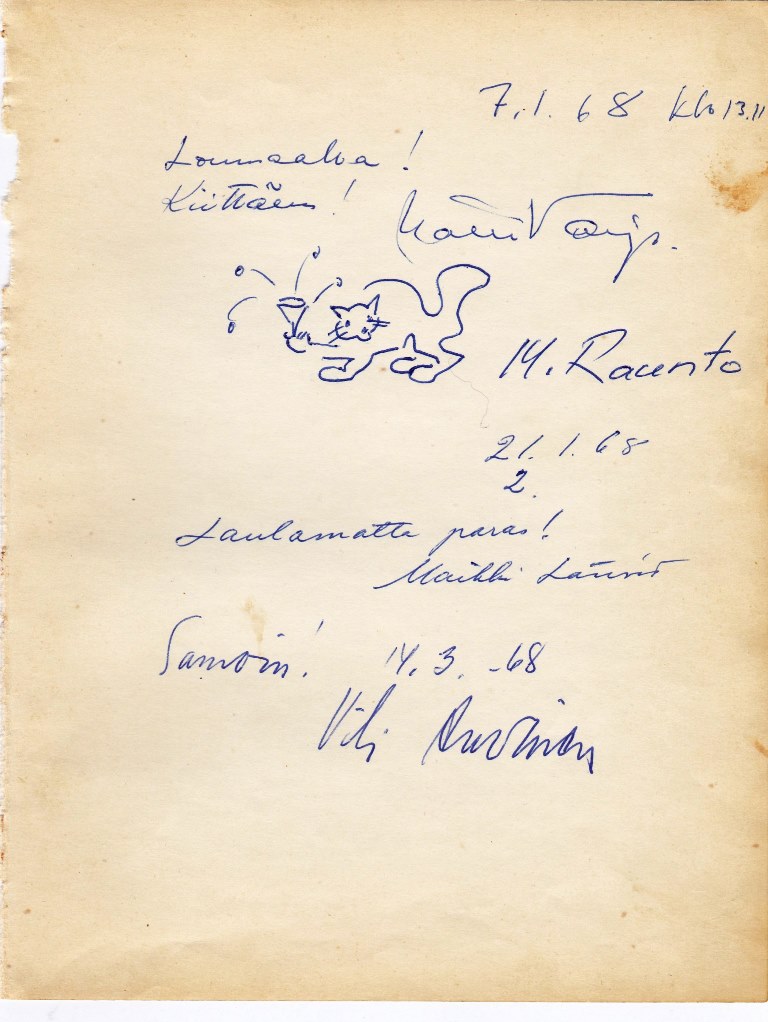 7.1.68 klo 13.11
Lounaalla!
Kiittäen!
M. Raunsto
21.1.68
2.
Laulamatta paras!
Maikki Länsiö
Samoin! 14.3.-68
Vili Auvinen